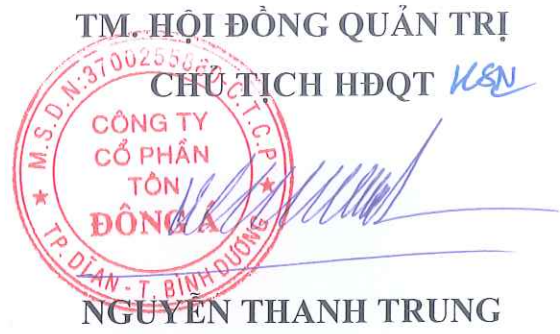 TM. HỘI ĐỒNG QUẢN TRỊ
CHỦ TỊCH HĐQT KSN
M.S.D.N:3700255880-C.T.C.P
CÔNG TY
CỔ PHẦN
TÔN
ĐÔNG Á
TP. DĨ AN - T. BÌNH DƯƠNG
NGUYỄN THANH TRUNG